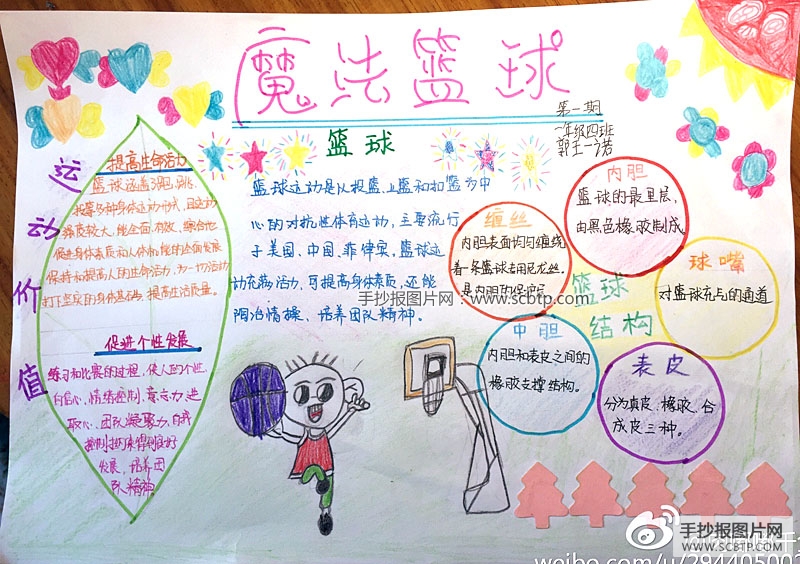 魔法篮球
第一期
一年级四班
郭王一诺
篮球
运动价值
提高生命活力
篮球涵盖了跑、跳、
投等多种身体运动形式，且运动
强度较大，能全面、有效、综合地
促进身体素质和人体机能的全面发展，
保持和提高人的生命活力，为一切活动
打下坚实的身体基础，提高生活质量。
促进个性发展
练习和比赛的过程，使人的个性、
自信心、情绪控制、意志力、进
取心、团队凝聚力、自我
发展，培养团
队精神
篮球运动是以投篮、上篮和扣篮为中
心的对抗性体育运动，主要流行
于美国、中国、菲律宾，篮球运
动充满活力，可提高身体素质，还能
陶冶情操、培养团队精神。
篮球
结构
内胆
篮球的最里层，
由黑色橡胶制成
缠丝
内胆表面均匀缠绕
着一条篮球专用尼龙丝。
球嘴
对篮球充气的通道
中胆
内胆和表皮之间的
橡胶支撑结构。
表皮
分为真皮、橡胶、合
成皮三种。
手抄报图片网：www.scbtp.com
手抄报图片网
WWW.SCBTP.COM